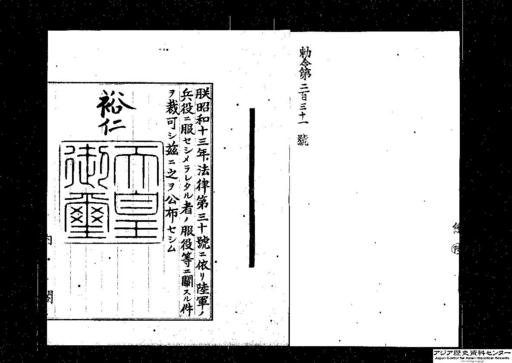 勅令第二百三十一號
朕昭和十三年法律第三十號ニ依リ陸軍ノ
兵役ニ服セシメラレタル者ノ服役等ニ關スル件
ヲ裁可シ茲ニ之ヲ公布セシム
裕仁
天皇
御璽
内閣
アジア歴史資料センター
Japan Center for Asian Historical Records